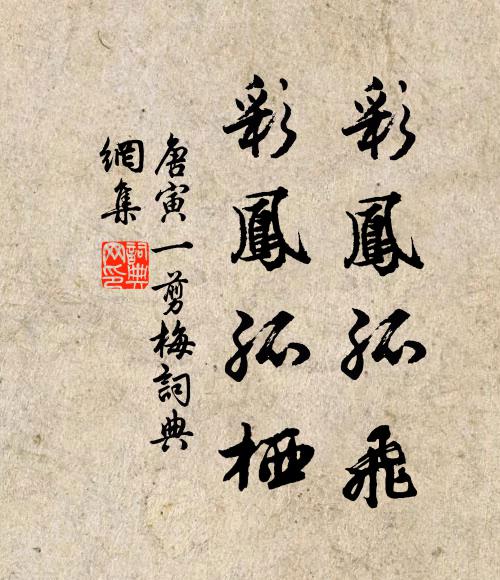 彩鳳孤飛
彩鳳孤栖
唐寅一剪梅詞典
網集
詞典
网印